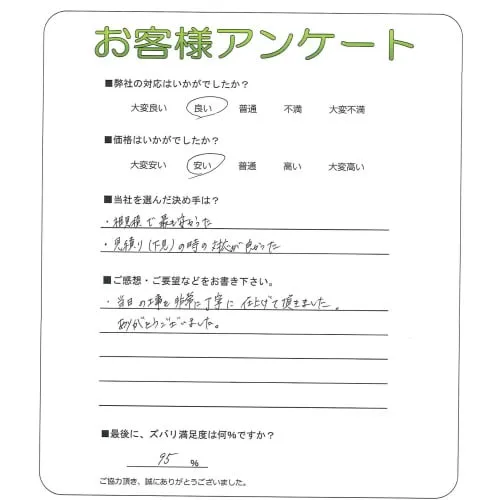 お客様アンケート
■弊社の対応はいかがでしたか？
大変良い 良い 普通 不満 大変不満
■価格はいかがでしたか？
大変安い 安い 普通 高い 大変高い
■当社を選んだ決め手は？
・相見積で最も安かった
・見積り(下見)の時の対応が良かった
■ご感想・ご要望などをお書き下さい。
・当日の工事も非常に丁寧に仕上げて頂きました。
ありがとうございました。
■最後に、ズバリ満足度は何％ですか？
95 %
ご協力頂き、誠にありがとうございました。